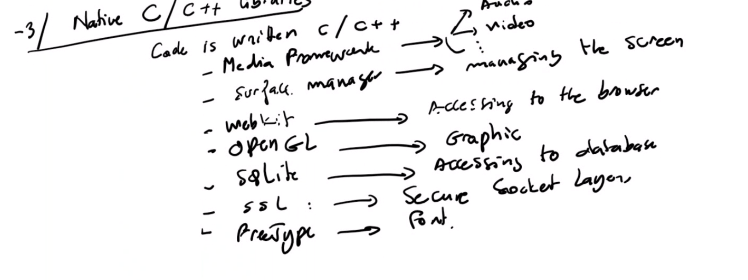 -3/ Native C/C++ libraries
Code is written C/C++
- Media Framework → Audio
→ video
- Surface manager → managing the screen
- webkit → Accessing to the browser
- OPEN GL → Graphic
- SQLite → Accessing to database
- SSL : → Secure Socket Layer,
- FreeType → Font.